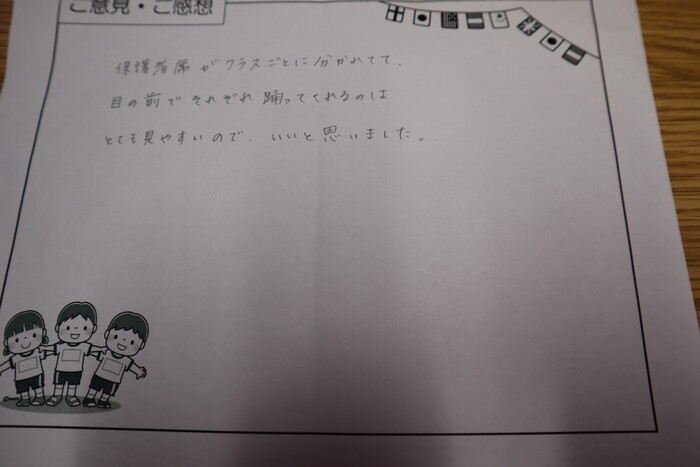 ご意見・ご感想
保護者席がクラスごとに分かれてて、
目の前でそれぞれ踊ってくれるのは
とても見やすいので、いいと思いました。